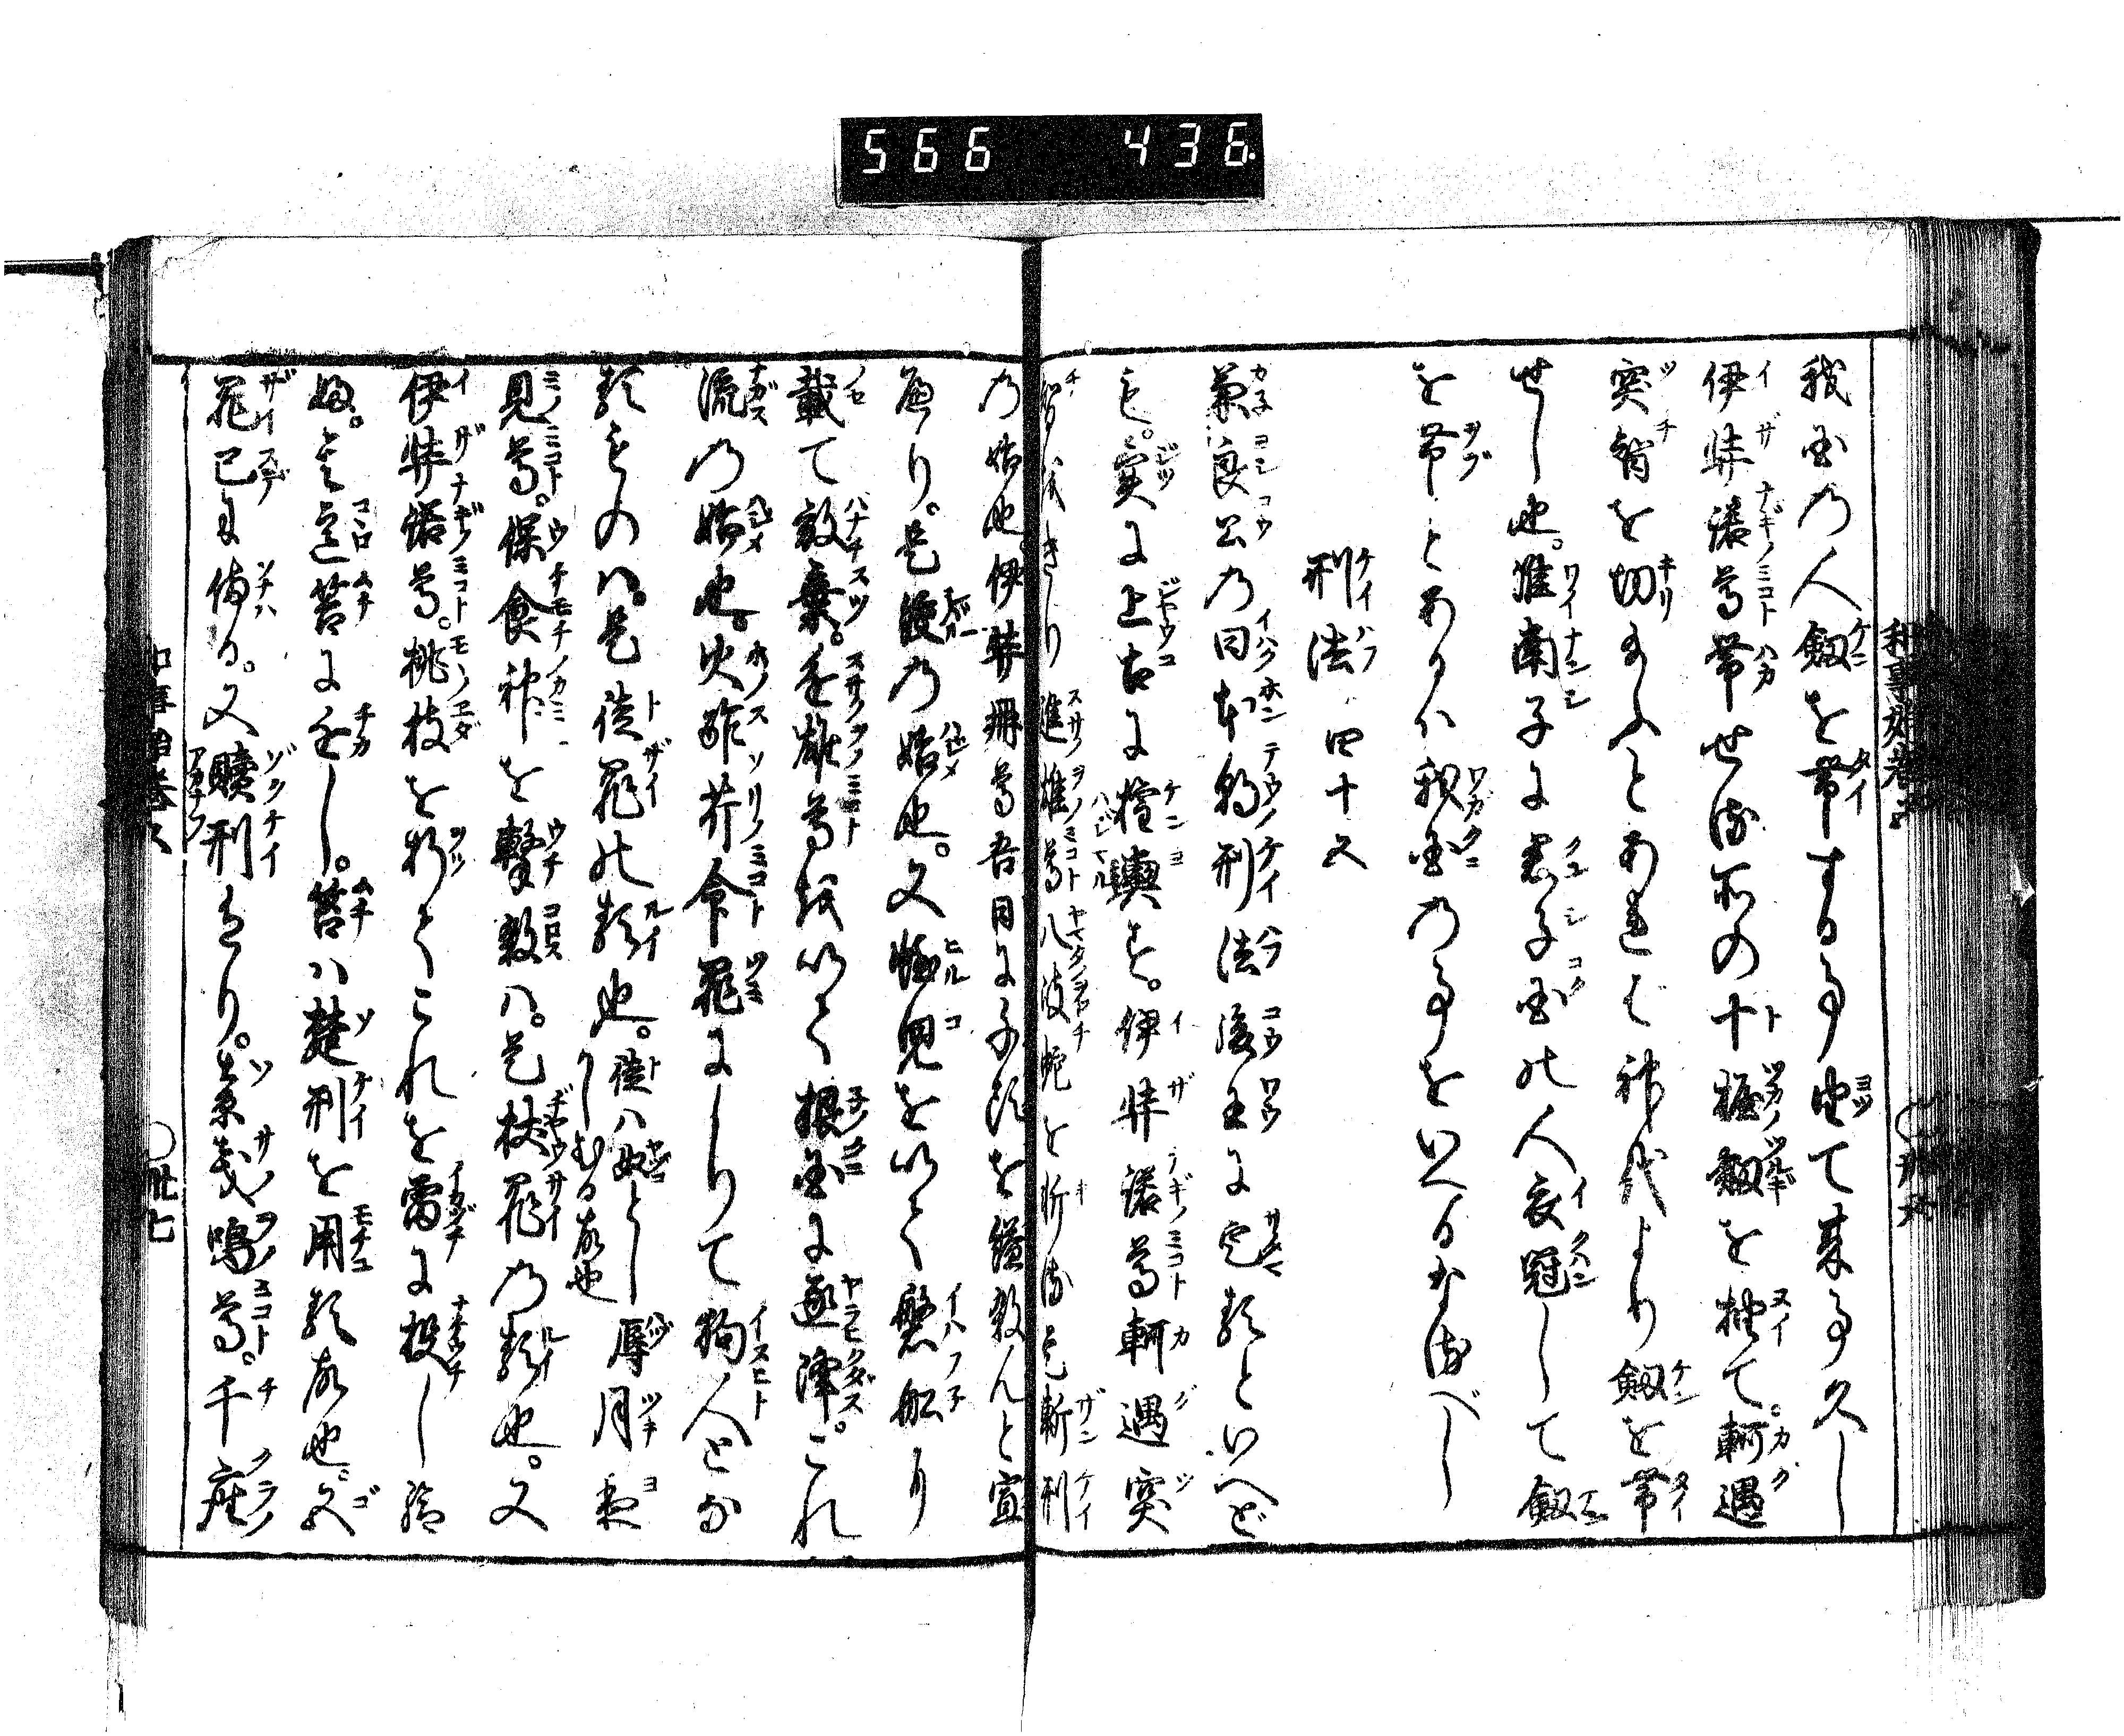 566 436
我国の人劔を帯する事由て来る事久し
伊弉諾尊帯せる所の十握劔を抜て。軻遇
突智を切玉ふとあれば神代より劔を帯
せし也。淮南子に君子国の人衣冠して劔
を帯とあるは我国の事をいへるなるべし
刑法 四十五
兼良公の曰本朝刑法後王に定るといへど
も。実は上古に権輿す。伊弉諾尊軻遇突
智 きり進雄尊八岐蛇を斫る是斬刑
の始也伊弉冊尊吾日に千頭を縊殺んと宣
へり。是 の始也。又蛭児を以て磐船に
載て放棄。進雄尊を以て根国に逐降。これ
流の始也。火酢芹命罪によりて狗人とな
るものハ。是徒罪の類也。徒ハ奴とし辱
かしむる故也月夜
見尊。保食神を撃殺ハ。是杖罪の類也。又
伊弉諾尊。桃枝を折てこれを雷に投し給
ふ。其意笞に近し。笞ハ楚刑を用る故也。又
罪已に備る。又贖刑あり。素戔嗚尊。千座
廿七